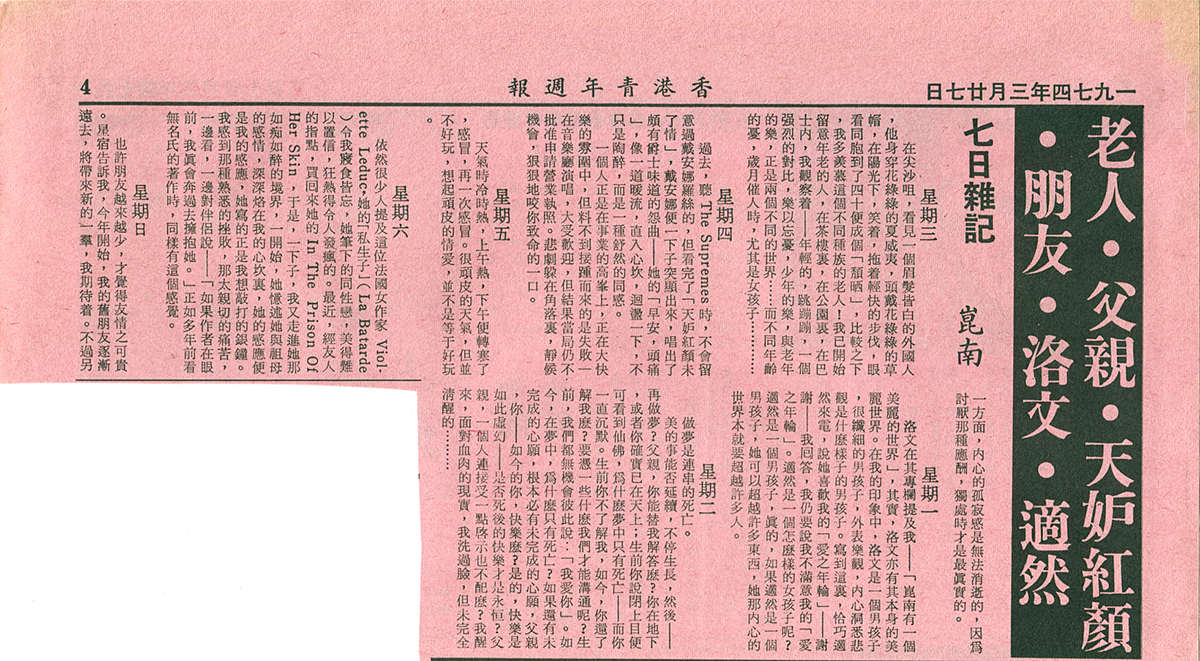 一九七四年三月廿七日
香港青年週報
4
老人・父親・天妒紅顏
・朋友・洛文・適然
七日雜記
崑南
星期三
在尖沙咀,看見一個眉髮皆白的外國人
,他身穿花綠綠的夏威夷,頭戴花綠綠的草
帽,在陽光下,笑着,抱着輕快的步伐,眼
看同胞到了四十便成個「頹晒」,比較之下
,我多羨慕這個不同種族的老人!我已開始
留意年老的人,在茶樓裏,在公園裏,在巴
士內,我觀察着——年輕的,跳蹦蹦,一個
强烈的對比,樂以忘憂,少年的樂,與老年
的樂,正是兩個不同的世界……而不同年齡
的憂,歲月催人時,尤其是女孩子………
星期四
過去,聽 The Supremes 時,不會留
意過戴安娜羅絲的,但看完了「天妒紅顏未
了情」,戴安娜便一下子突顯出來,唱出了
頗有爵士味道的怨曲——她的「早安,頭痛
」,像一道暖流,直入心坎,迴盪一下,不
只是陶醉,而是一種舒然的同感。
一個人正是在事業的高峯上,正在大快
樂的雰圍中,但料不到接踵而來的是失敗——
在音樂廳演唱,大受歡迎,但結果當局仍不
批准申請營業執照。悲劇躲在角落裏,靜候
機會,狠狠地咬你致命的一口。
星期五
天氣時冷時熱,上午熱,下午便轉寒了
,感冒,再一次感冒。很頑皮的天氣,但並
不好玩,想起頑皮的情愛,並不是等于好玩
。
星期六
依然很少人提及這位法國女作家 Viol-
ette Leduc,她的「私生子」(La Batarde
)令我寢食皆忘,她筆下的同性戀,美得難
以置信,狂熱得令人發瘋的。最近,經友人
的指點,買回來她的 In The Prison Of
Her Skin,于是,一下子,我又走進她那
如痴如醉的境界,一開始,她憶述她與祖母
的感情,深深烙在我的心坎裏,她的感應便
是我的感應,她寫的正是我想敲打的銀鐘。
我感到那種熟悉的挫敗,那太親切的痛苦,
一邊看,一邊對伴侶說——「如果作者在眼
前,我眞會奔過去擁抱她。」正如多年前看
無名氏的著作時,同樣有這個感覺。
星期日
也許朋友越來越少,才覺得友情之可貴
。星宿告訴我,今年開始,我的舊朋友逐漸
遠去,將帶來新的一羣,我期待着。不過另
一方面,內心的孤寂感是無法消逝的,因爲
討厭那種應酬,獨處時才是最眞實的。
星期一
洛文在其專欄提及我——「崑南有一個
美麗的世界」,其實,洛文亦有其本身的美
麗世界。在我的印象中,洛文是一個男孩子
,很纖細的男孩子,外表樂觀,內心洞悉悲
觀是什麼樣子的男孩子。寫到這裏,恰巧適
然來電,說她喜歡我的「愛之年輪」——謝
謝——我回答,我仍要說我不滿意我的「愛
之年輪」。適然是一個怎麼樣的女孩子呢?
適然是一個男孩子,眞的,如果適然是一個
男孩子,她可以超越許多東西,她那內心的
世界本就要超越許多人。
星期二
做夢是連串的死亡。
美的事能否延續,不停生長,然後——
再做夢?父親,你能替我解答麼?你在地下
,或者你確實已在天上;生前你說閉上目便
可看到仙佛,爲什麼夢中只有死亡——而你
一直沉默。生前你不了解我,如今,你還了
解我麼?要憑一些什麼我們才能溝通呢?生
前,我們都無機會彼此說:「我愛你」。如
今,在夢中,爲什麼只有死亡?如果還有未
完成的心願,根本必有未完成的心願,父親
,你——如今的你,快樂麼?是的,快樂是
如此虛幻——是否死後的快樂才是永恒?父
親,一個人連接受一點啓示也不配麼?我醒
來,面對血肉的現實,我洗過臉,但未完全
清醒的………